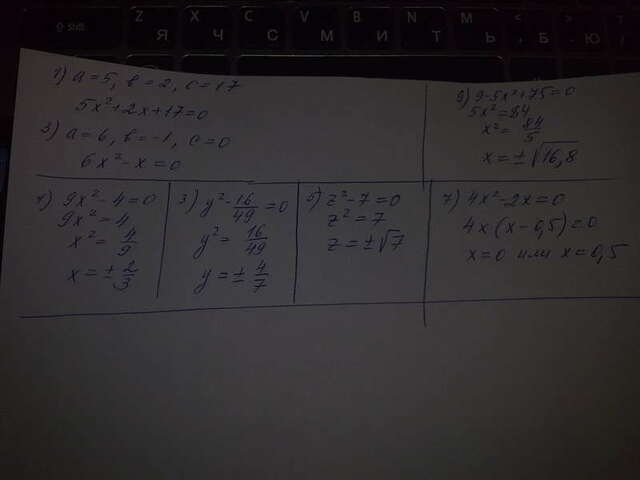 shift Z Я X Ч C С V М B И N Т M Ь < , Б > . Ю
1) a=5, b=2, c=17
5x²+2x+17=0
3) a=6, b=-1, c=0
6x²-x=0
9) 9-5x²+75=0
5x²=84
x²= 84/5
x=±√16,8
1) 9x²-4=0
9x²=4
x²= 4/9
x=± 2/3
3) y²- 16/49 =0
y²= 16/49
y=± 4/7
5) z²-7=0
z²=7
z=±√7
7) 4x²-2x=0
4x(x-0,5)=0
x=0 или x=0,5